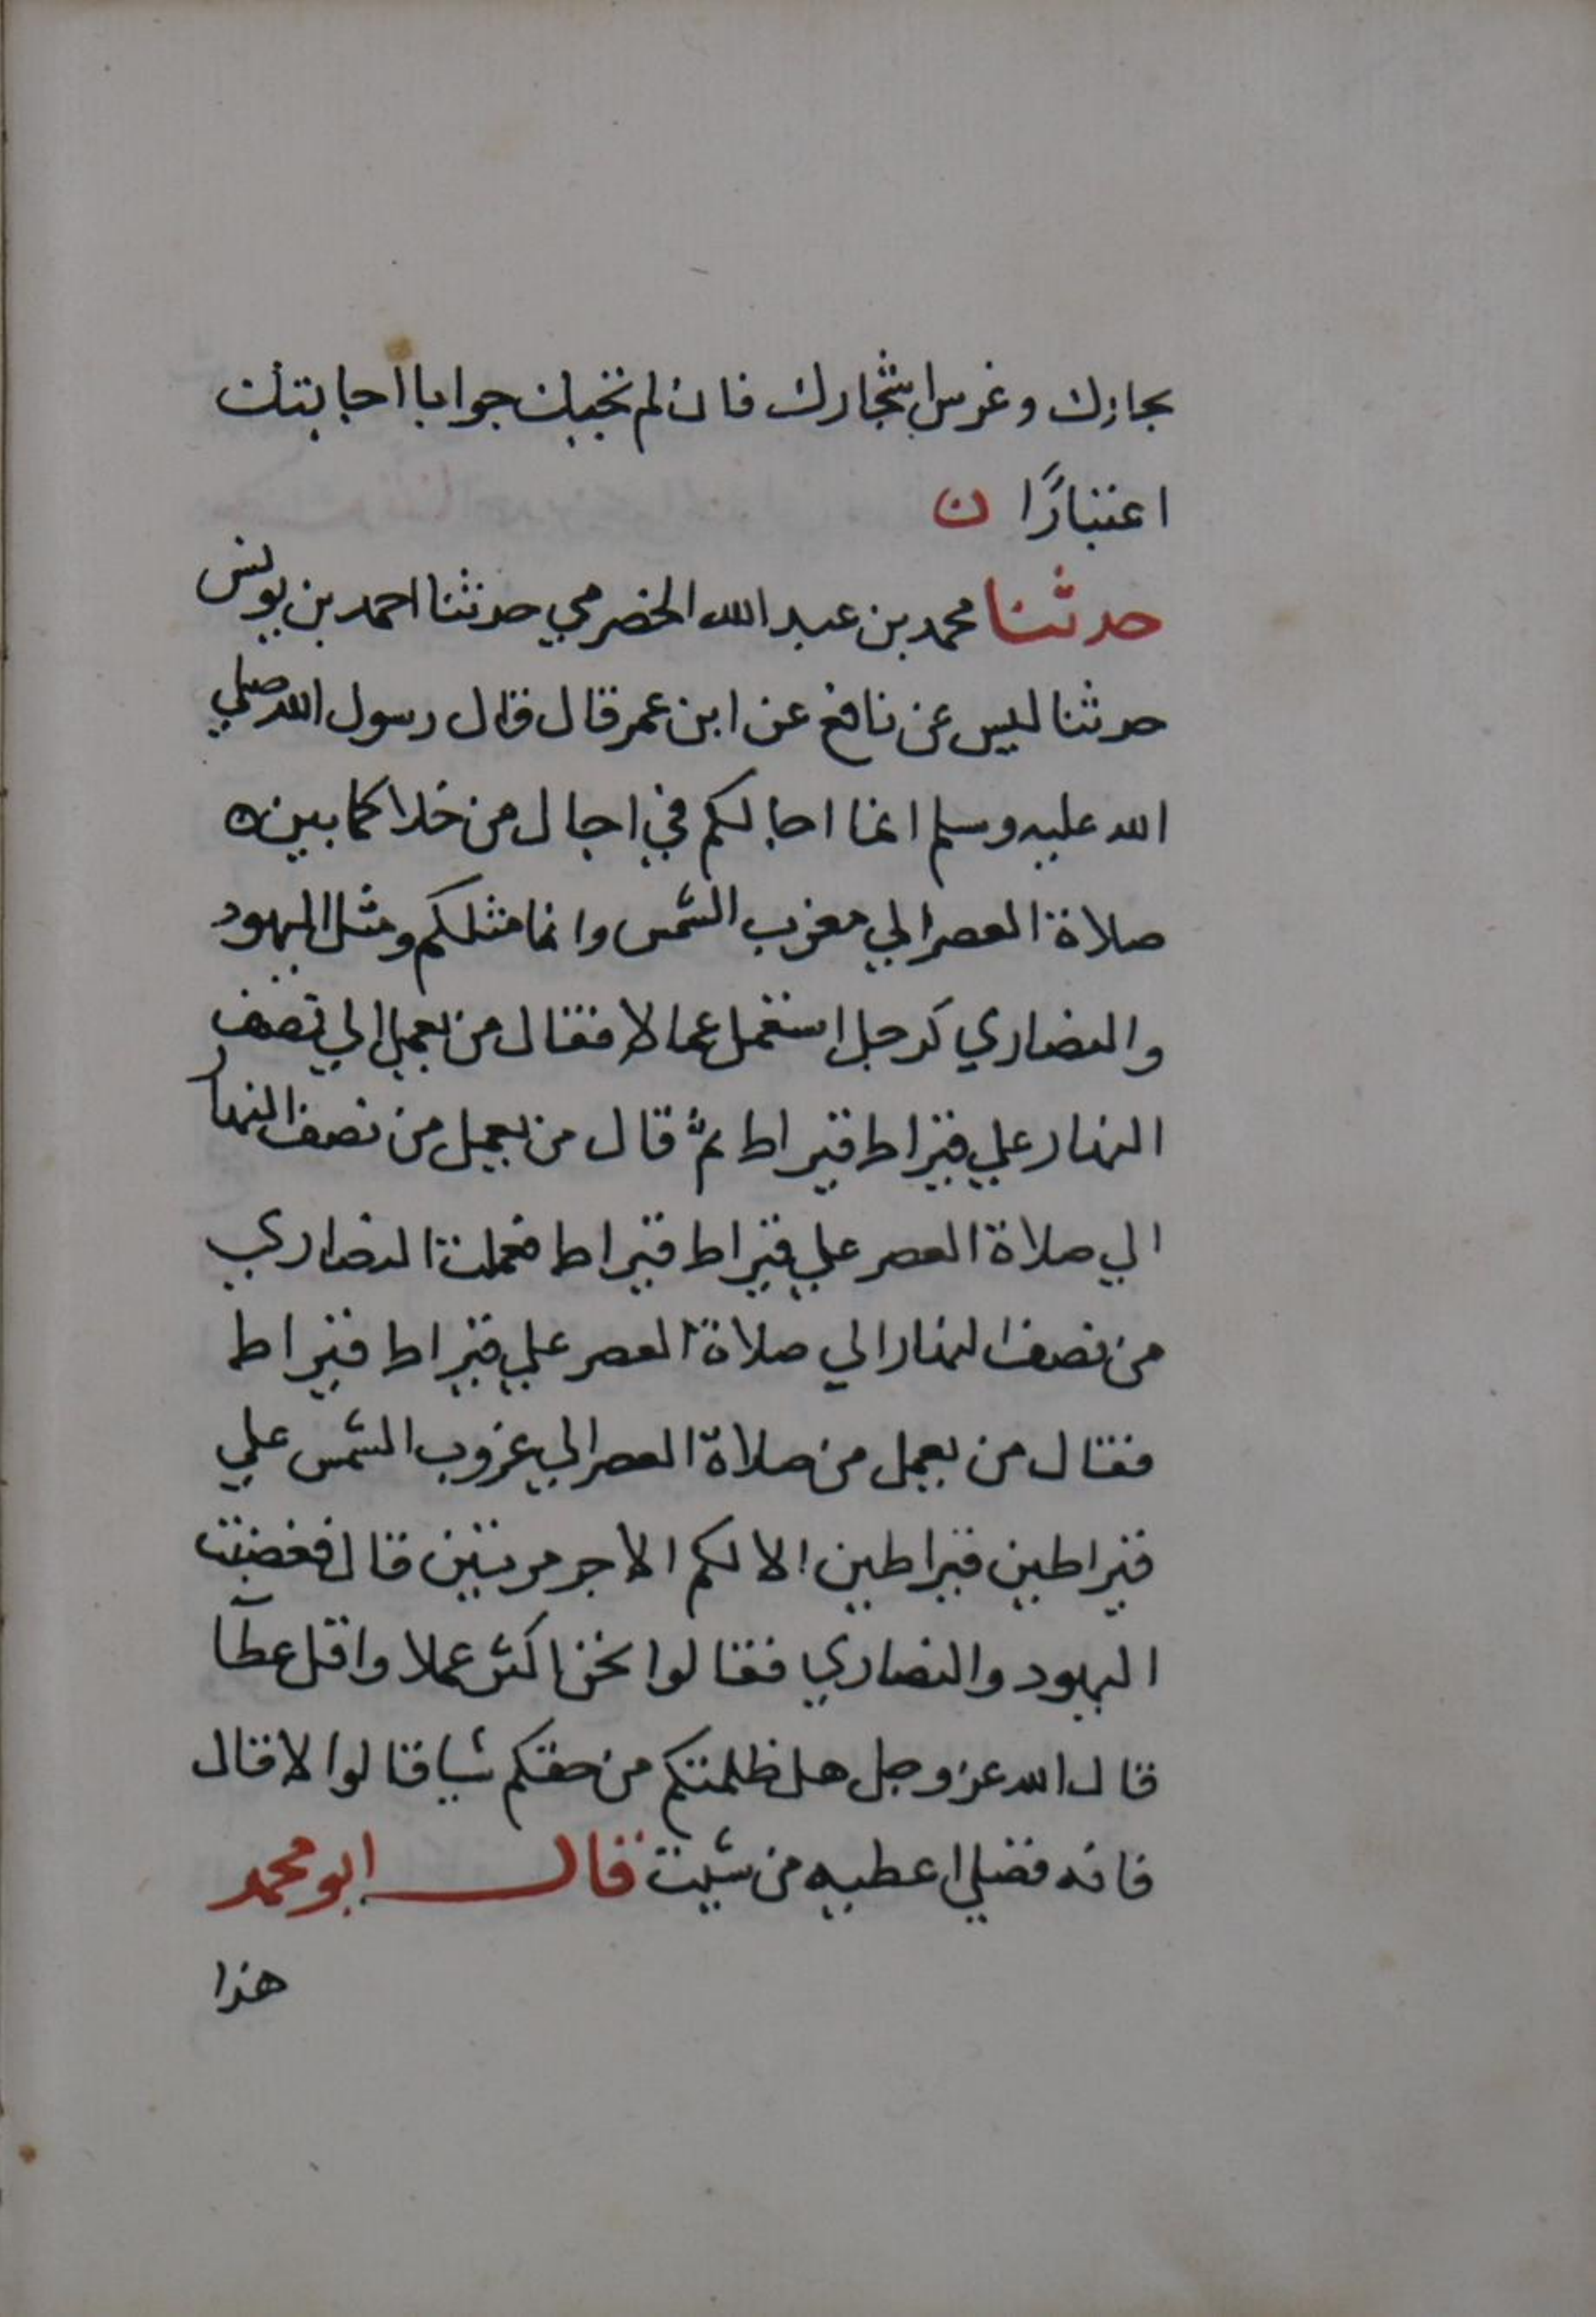 بحارك وغرس اشجارك فان لم تجبك جوابا اجابتك
اعتبارًا ن
حدثنا محمد بن عبد الله الحضرمي حدثنا احمد بن يونس
حدثنا ليس عن نافع عن ابن عمر قال قال رسول الله صلي
الله عليه وسلم انما اجالكم في اجال من خلا كما بين
صلاة العصر الي مغرب الشمس وانما مثلكم ومثل اليهود
والنصاري كرجل استعمل عمالا فقال من يعمل الي نصف
النهار علي قيراط قيراط ثم قال من يعمل من نصف النهار
الي صلاة العصر علي قيراط قيراط فعملت النصاري
من نصف النهار الي صلاة العصر علي قيراط قيراط
فقال من يعمل من صلاة العصر الي غروب الشمس علي
قيراطين قيراطين الا لكم الاجر مرتين قال فغضبت
اليهود والنصاري فقالوا نحن اكثر عملا واقل عطآ
قال الله عز وجل هل ظلمتكم من حقكم شيا قالوا لا قال
فانه فضلي اعطيه من شيت قال ابو محمد
هذا